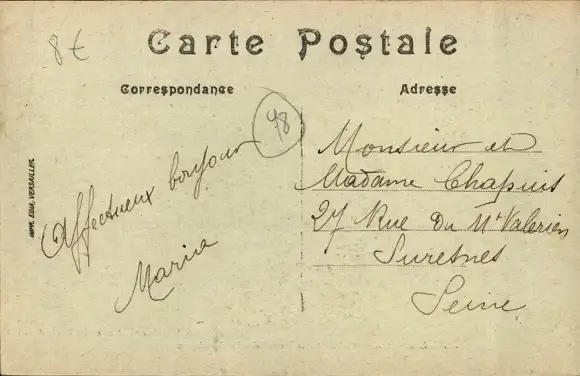 8€
Carte Postale
Correspondance
Adresse
78
Affectueux bonjour
Maria
Monsieur et
Madame Chapuis
27 Rue Du Mt Valerien
Suresnes
Seine
IMP. EDIA, VERSAILLES